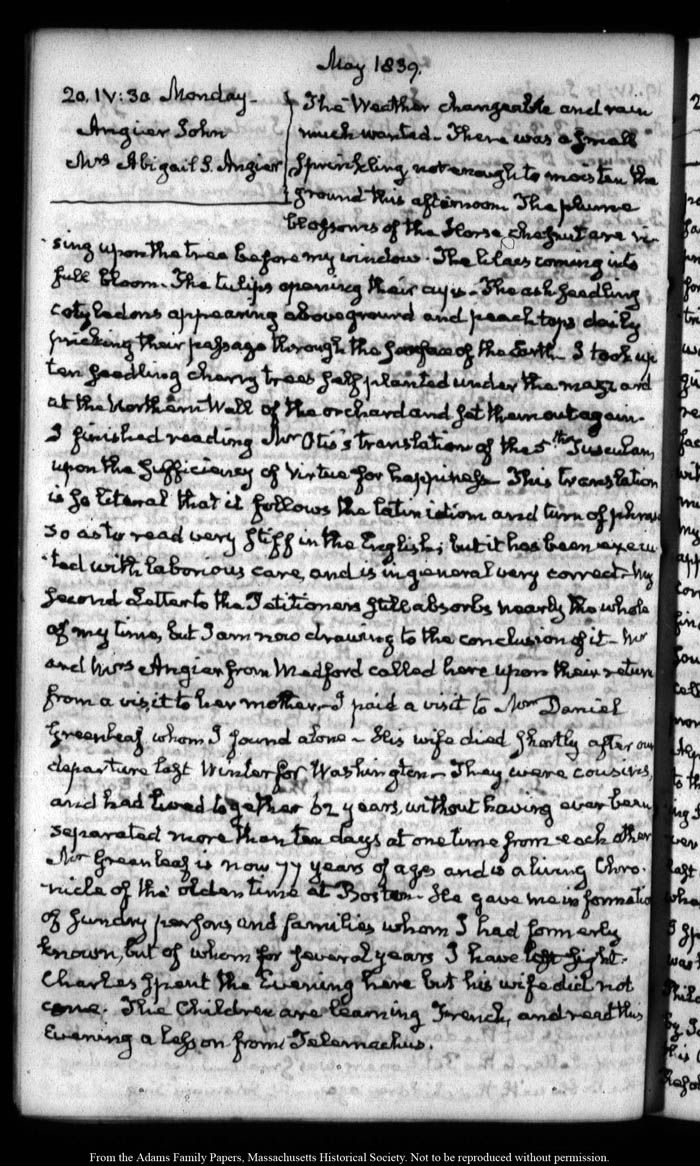 May 1839.
20. IV:30 Monday.
Angier John
Mrs Abigail S. Angier
The Weather changeable and rain
much wanted. There was a small
sprinkling not enough to moisten the
ground this afternoon. The plume
blossoms of the Horse chesnut are ri-
sing upon the tree before my window. The lilacs coming into
full bloom. The tulips opening their The ash seedling
cotyledons appearing above ground and peach tops daily
pricking their passage through the surface of the Earth. I took up
ten seedling cherry trees self planted under the and
at the Northern Wall of the orchard and set them out again.
I finished reading Mr Otis's translation of the 5th Tusculan,
upon the sufficiency of Virtue for happiness. This translation
is so literal that it follows the latin idiom and turn of phrase
so as to read very stiff in the English; but it has been execu-
ted with laborious care, and is in general very correct. My
second Letter to the Petitioners still absorbs nearly the whole
of my time, but I am now drawing to the conclusion of it. Mr
and Mrs Angier from Medford called here upon their return
from a visit to her mother. I paid a visit to Mr Daniel
Greenleaf whom I found alone. His wife died shortly after our
departure last Winter for Washington. They were cousins,
and had lived together 62 years, without having ever been
separated more than ten days at one time from each other
Mr Greenleaf is now 77 years of age and is a living Chro-
nicle of the olden time at Boston. He gave me informatio
of sundry persons and families whom I had formerly
known, but of whom for several years I have lost sight.
Charles spent the Evening here but his wife did not
come. The Children are learning French, and read this
Evening a lesson from Telemachus.
From the Adams Family Papers, Massachusetts Historical Society. Not to be reproduced without permission.